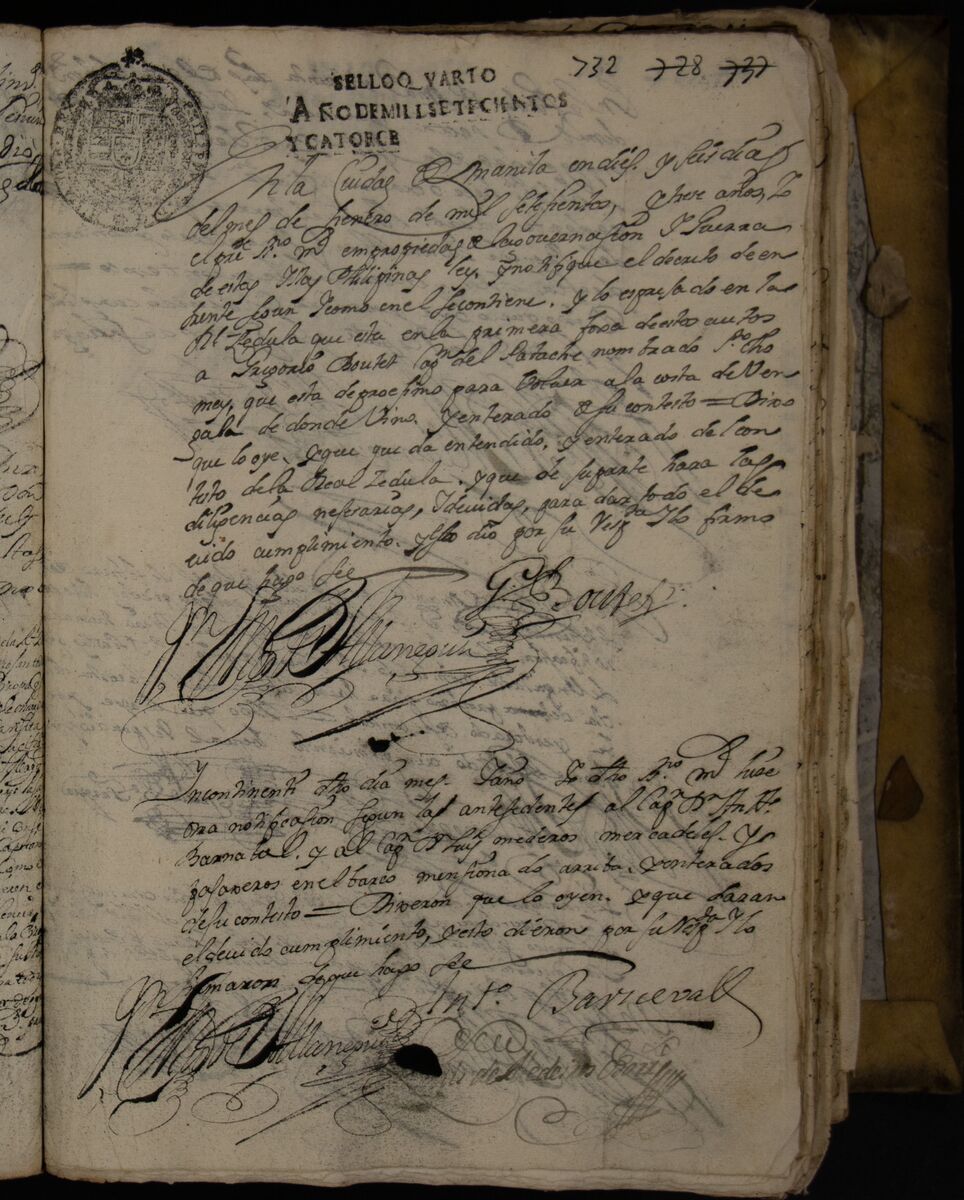 732 728 737
SELLO QVARTO
AÑO DE MILL SETECIENTOS
Y CATORCE
En la Ciudad de Manila en dies y seis dias
del mes de henero de mil setesientos, y siete años, Yo
el pre.te Ss.no m.r en propiedad de la Governasion Y Guerra
de estas Yslas Philipinas ley y notifique el decreto de en
frente segun Y como en el se contiene. y lo espresado en la
Rl. Zedula que esta en la primera foxa de estos autos
a Gregorio Boutet Cap.n del Patache nombrado S.to Tho
mey, que esta de proesimo para bolver a la costa de Ven
gala de donde Vino. Y enterado de su contesto = Dixo
que lo oye. y que queda entendido, y enterado del con
testo de la Real Zedula. y que de su parte hara las
diligencias nesesarias, Y devidas, para dar todo el de
vido cumplimiento. y esto dio por su Resp.ta Y lo firmo
de que hago fee
G. Boutet
Yncontinenti dho dia mes. Y año Yo dho Ss.no m.r hise
otra notificasion segun las antesedentes al Cap.n Dn. Antt.o
Barnabal. y al Cap.n Dn. Luis mederos mercaderes. y
pasaxeros en el barco mensionado arriba. y enterados
de su contesto = Dixeron que lo oyen. y que daran
el devido cumplimiento, y esto dieron por su Resp.ta Y lo
firmaron de que hago fee
Ant.o Barnevall